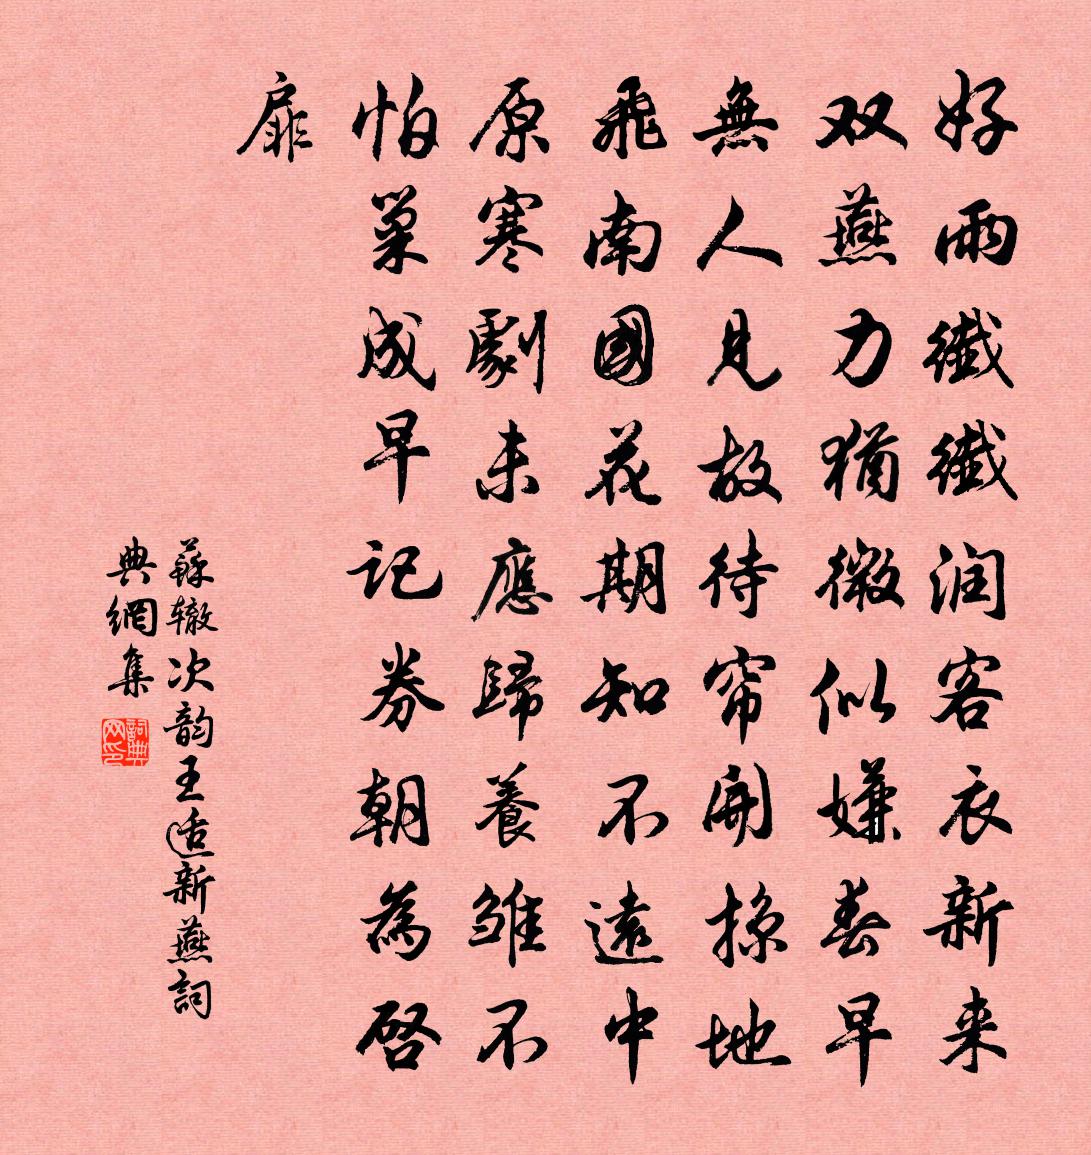 好雨纖纖润客衣新来
双燕力猶微似嫌春早
無人見故待帘開掠地
飛南國花期知不遠中
原寒劇未應歸養雏不
怕巢成早记券朝為啓
扉
蘇辙次韵王适新燕詞
典網集
詞典网印